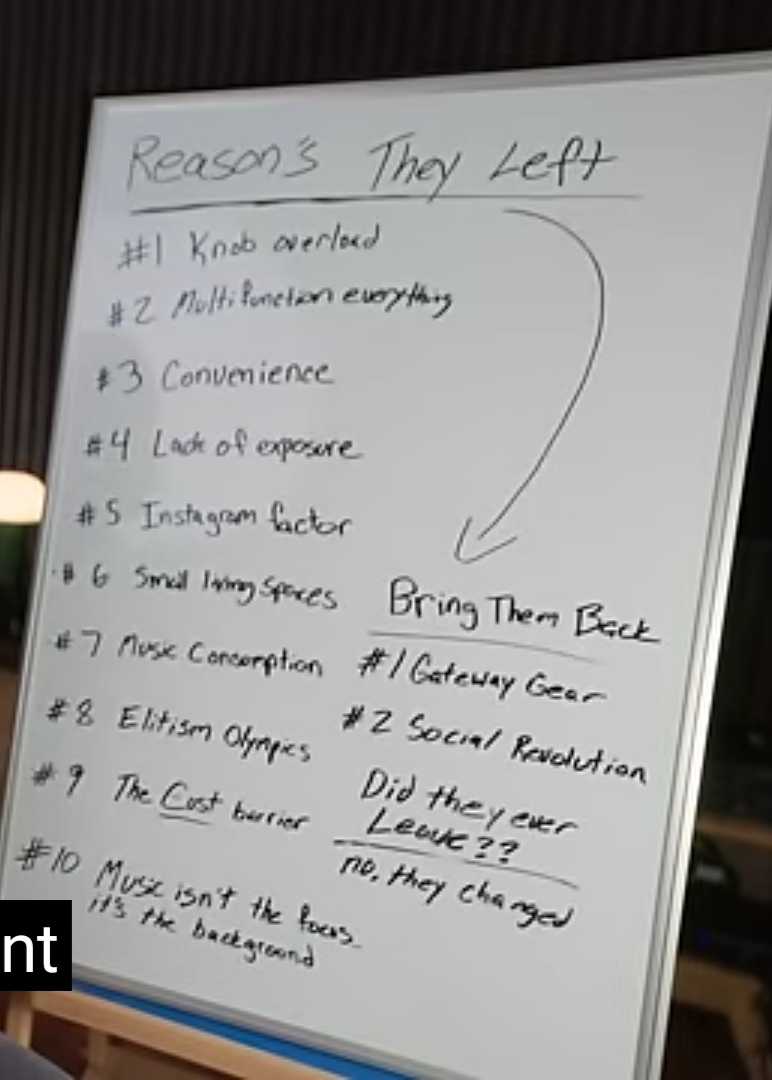 Reason's They Left
#1 Knob overload
#2 Multifunction everything
#3 Convenience
#4 Lack of exposure
#5 Instagram factor
#6 Small living spaces
#7 Music Consumption
#8 Elitism Olympics
#9 The Cost barrier
#10 Music isn't the focus
it's the background
Bring Them Back
#1 Gateway Gear
#2 Social Revolution
Did they ever
Leave??
no, they changed
nt